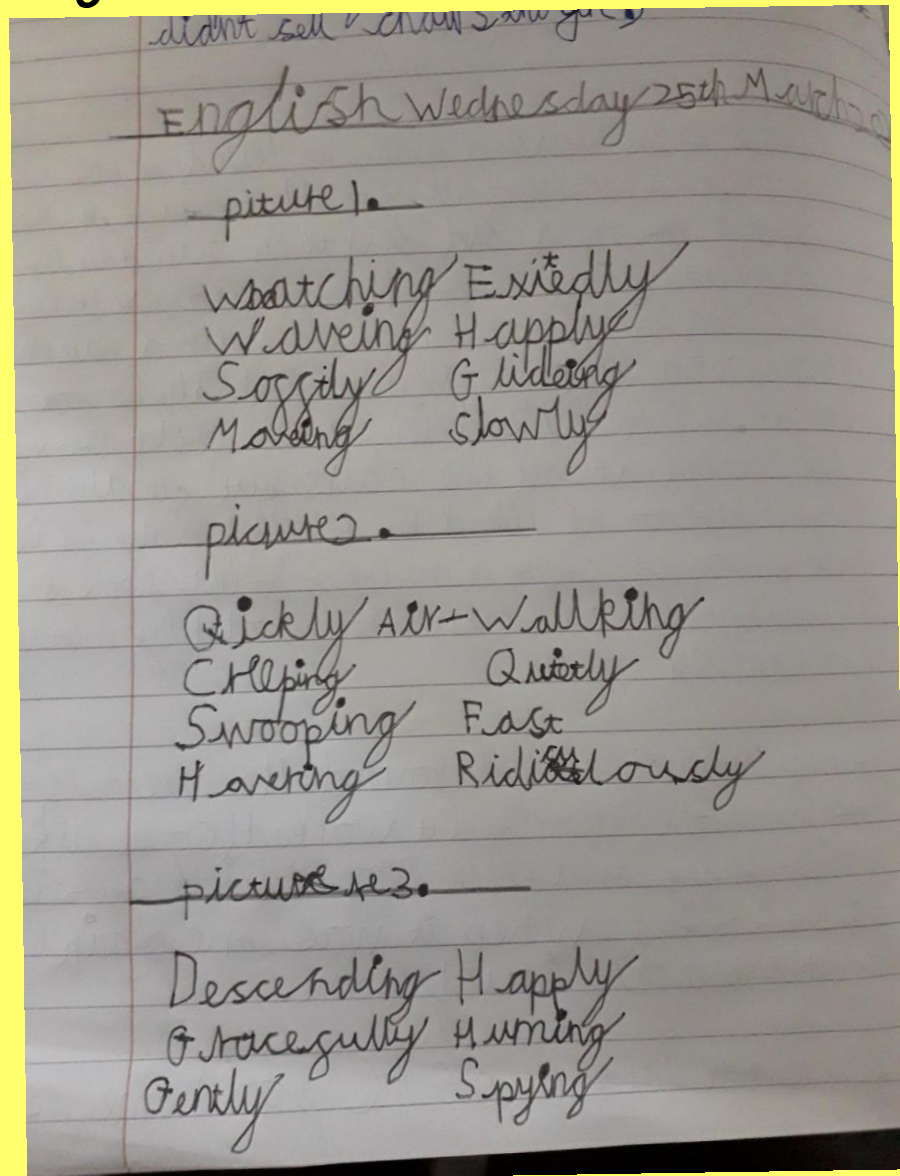 didnt sell
English Wednesday 25th March 20
piture 1.
Watching Exitedly
Waveing Happly
Soggily Glideing
Moveing Slowly
picture 2.
Qickly Air-Wallking
Creeping Quietly
Swooping Fast
Havering Ridiculously
picture 3.
Descending Happly
Gracefully Huming
Gently Spying